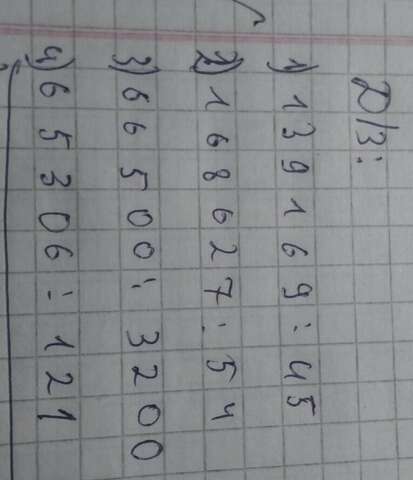 Д/З:
1) 139169:45
2) 168627:54
3) 66500:3200
4) 65306:121